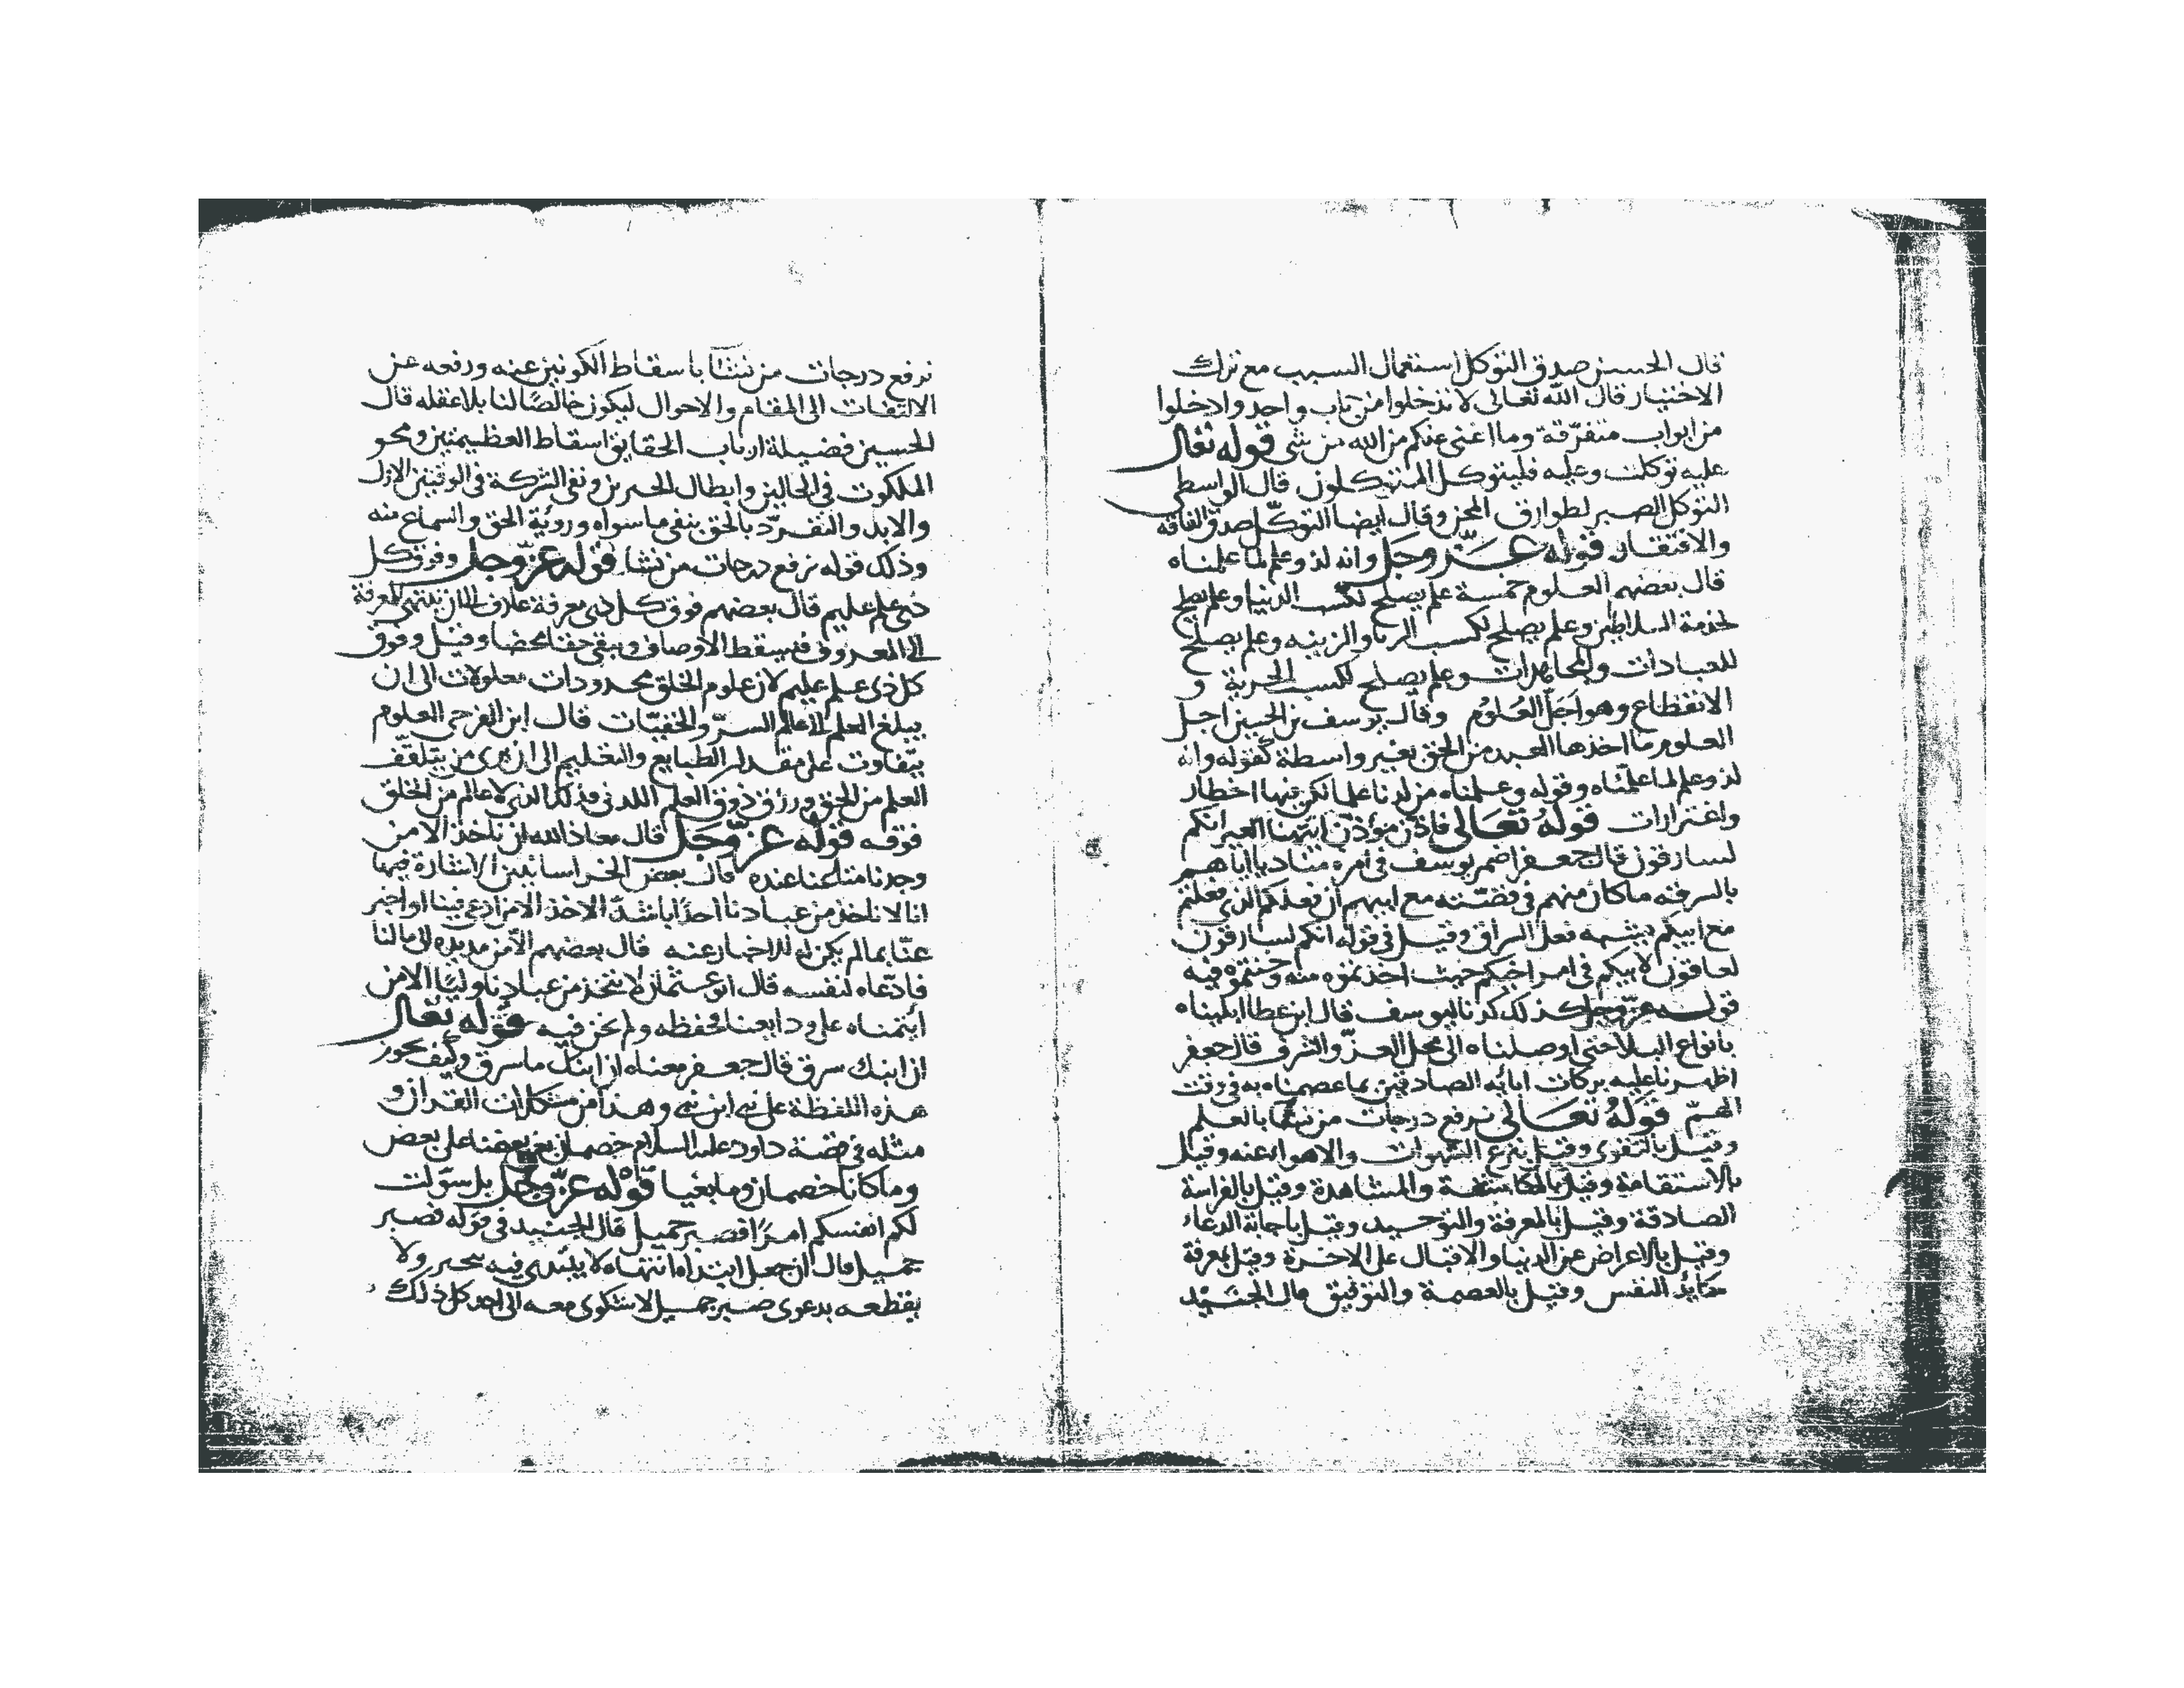 قال الحسين صدق التوكل استعمال السبب مع ترك
الاختيار قال الله تعالى لا تدخلوا من باب واحد وادخلوا
من ابواب متفرّقة وما اغنى عنكم من الله من شى قوله تعالى
عليه توكلت وعليه فليتوكل المتوكلون قال الواسطى
التوكل الصبر لطوارق المحن وقال ايضا التوكّل صدق الفاقه
والافتقار قوله عـزّ وجل وانه لذو علم لما علمناه
قال بعضهم العلوم خمسة علم يصلح لكسب الدنيا وعلم يصلح
لخدمة السلاطين وعلم يصلح لكسب الريا والزينه وعلم يصلح
للعبادات والمجاهدات وعلم يصلح لكسب الحرية و
الانقطاع وهو اجل العلوم وقال يوسف بن الحسين اجل
العلوم ما اخذها العبد من الحق بغير واسطة كقوله وانه
لذو علم لما علمناه وقوله وعلمناه من لدنا علما لكن فيها اخطار
واغترارات قوله تعالى فاذن مؤذن ايتها العير انكم
لسارقون قال جعفر اضمر يوسف فى امره مناديا اياهم
بالسرقه ما كان منهم فى قصّته مع ابيهم ان فعلكم الذى فعلتم
مع ابيكم يشبه فعل السراق وقيل فى قوله انكم لسارقون
لعاقون لابيكم فى امر اخيكم حيث اخذتموه منه وخنتموه فيه
قوله عزّ وجل كذلك كدنا ليوسف قال ابن عطا ابليناه
بانواع البلا حتى اوصلناه الى محل العزّ والشرف قال جعفر
اظهرنا عليه بركات ابائه الصادقين بما عصمناه به فى وقت
الهمّ قوله تعالى نرفع درجات من نشآ بالعلم
وقيل بالتقوى وقيل بنزع الشهوات والاهوا عنه وقيل
بالاستقامة وقيل بالمكاشفة والمشاهدة وقيل بالفراسة
الصادقة وقيل بالمعرفة والتوحيد وقيل باجابة الدعاء
وقيل بالاعراض عن الدنيا والاقبال على الاخرة وقيل بمعرفة
مكايد النفس وقيل بالعصمة والتوفيق قال الجنيد
نرفع درجات من نشآ باسقاط الكونين عنه ورفعه عن
الالتفات الى المقام والاحوال ليكون خالصًا لنا بلا عقله قال
الحسين فضيلة ارباب الحقايق اسقاط العظيمتين ومحو
الملكوت فى الحالين وابطال الحبرين ونفى التركة فى الوقتين الازل
والابد والتفرّد بالحق بنفى ما سواه ورؤية الحق والسماع منه
وذلك قوله نرفع درجات من نشا قوله عزّ وجل وفوق كل
ذى علم عليم قال بعضهم فوق كل ذى معرفة عارف الى ان تنتهى المعرفة
الى المعروف فتسقط الاوصاف ويبقى حقا محضا وقيل وفوق
كل ذى علم عليم لان علوم الخلق محدودات معلولات الى ان
يبلغ العلم الى عالم السرّ والخفيّات قال ابن الفرحى العلوم
يتفاوت على مقدار الطبايع والتعليم الى ان يرى من يتلقف
العلم من الحق ورزق ذوق العلم اللدنى فذلك الذى لا عالم من الخلق
فوقه قوله عزّ وجل قال معاذ الله ان ناخذ الا من
وجدنا متاعنا عنده قال بعض الخراسانيين الاشارة فيها
انا لا ناخذ من عبادنا احدًا باشدّ الاخذ الا من ادعى فينا او اخبر
عنّا بما لم يكن له الاخبار عنه قال بعضهم الّا من مد يده الى ما لنا
فادّعاه لنفسه قال ابو عثمان لا نتخذ من عبادنا وليًا الا من
ايتمناه على ودايعنا فحفظه ولم يخن فيه قوله تعالى
ان ابنك سرق قال جعفر معناه ان ابنك ما سرق وكيف يجوز
هذه اللفظة على نبى ابن نبى وهذا من مشكلات القران و
مثله فى قصة داود عليه السلام خصمان بغى بعضنا على بعض
وما كانا خصمان وما بغيا قوله عزّ وجل بل سوّلت
لكم انفسكم امرًا فصبر جميل قال الجنيد فى قوله فصبر
جميل قال ان جعل ابتداه انتهاه لا يبتدى فيه بتحبر ولا
يقطعه بدعوى صبر جميل لا شكوى معه الى احد كل ذلك